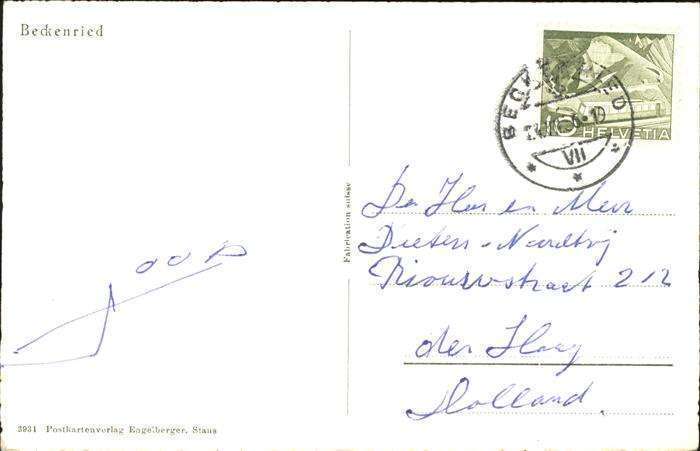 Beckenried
BECKENRIED
VII
10 HELVETIA
Fabrication suisse
De Heer en Mevr
Dieters-Noordwij
Riouwstraat 212
den Haag
Holland.
Joop
3931 Postkartenverlag Engelberger, Stans